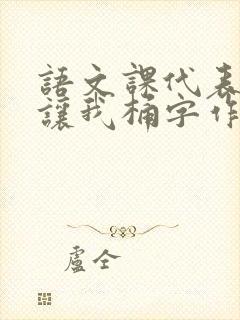 語文課代表
讓我桶字作
盧仝